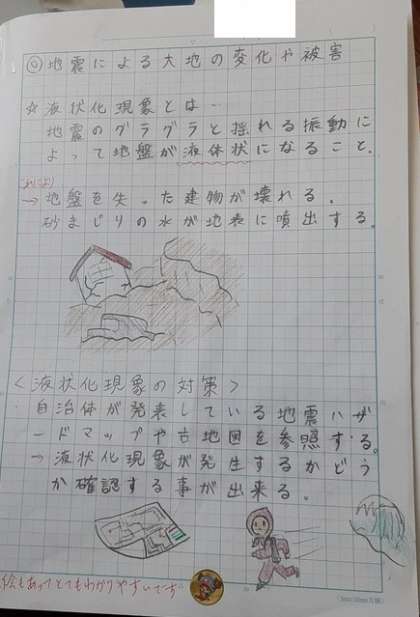 ◎地震による大地の変化や被害
☆液状化現象とは…
地震のグラグラと揺れる振動に
よって地盤が液体状になること。
これにより
→地盤を失った建物が壊れる。
砂まじりの水が地表に噴出する。
<液状化現象の対策>
自治体が発表している地震ハザ
ードマップや古地図を参照する。
→液状化現象が発生するかどう
か確認する事が出来る。
絵もあってとてもわかりやすいです